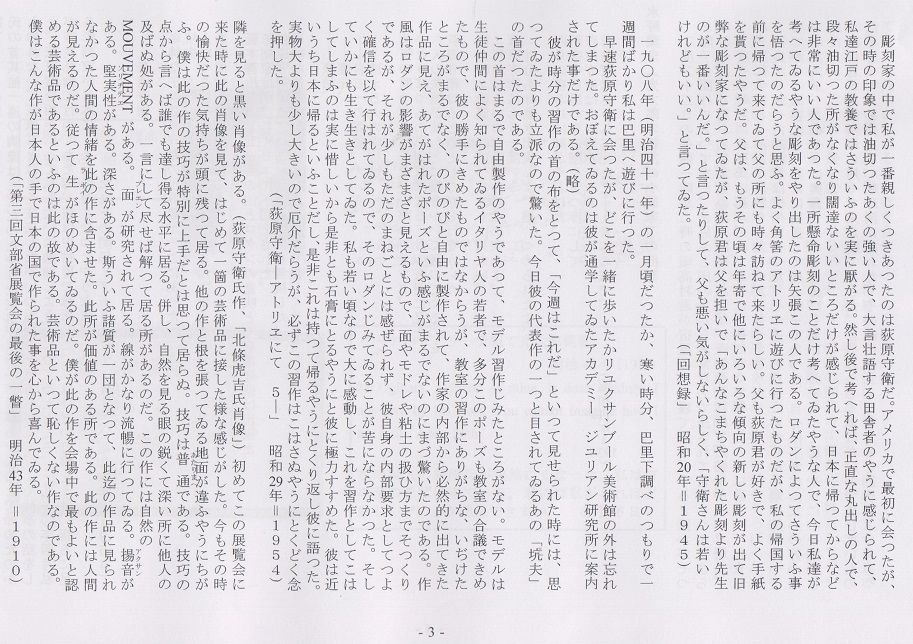 彫刻家の中で私が一番親しくつきあつたのは荻原守衛だ。アメリカで最初に会つたが、
その時の印象では油切つたあくの強い人で、大言壮語する田舎者のやうに感じられて、
私達江戸の教養ではさういふのを実に厭がる。然し後で考へれば、正直な丸出しの人で、
段々油切つた所がなくなり闊達ないいところだけが感じられて、日本に帰つてからなど
は非常にいい人であつた。一所懸命彫刻のことだけ考へてゐたやうな人で、今日私達が
考へてゐるやうな彫刻をやり出したのは矢張この人である。ロダンによつてさういふ事
を悟つたのだらうと思ふ。よく角筈のアトリエに遊びに行つたものだが、私の帰国する
前に帰つて来てゐて父の所にも時々訪ねて来たらしい。父も荻原君が好きで、よく手紙
を貰つたやうだ。父は、もうその頃は年寄で他にいろいろな傾向の新しい彫刻が出て旧
弊な彫刻家になつてゐたが、荻原君は父を担いで「あんなこまちやくれた彫刻より先生
のが一番いいんだ。」と言つたりして、父も悪い気がしないらしく、「守衛さんは若い
けれどもいい。」と言つてゐた。　　　　　　　　（「回想録」　昭和20年＝1945）
一九〇八年（明治四十一年）の一月頃だつたか、寒い時分、巴里下調べのつもりで一
週間ばかり私は巴里へ遊びに行つた。
早速荻原守衛に会つたが、どこを一緒に歩いたかリュクサンブール美術館の外は忘れ
てしまつた。おぼえてゐるのは彼が通学してゐたアカデミー　ジュリアン研究所に案内
された事だけである。（略）
彼が時分の習作の首の布をとつて、「今週はこれだ」といつて見せられた時には、思
つてゐたよりも立派なので驚いた。今日彼の代表作の一つと目されてゐるあの「坑夫」
の首だつたのである。
この首はまるで自由製作のやうであつて、モデル習作じみたところがない。モデルは
生徒仲間によく知られてゐるイタリヤ人の若者で、多分このポーズも教室の合議できめ
たもので、彼の勝手にきめたものではなからうが、教室の習作にありがちな、いぢけた
ところがまるでなく、のびのびと自由に製作されて、作家の内部から必然的に出てきた
作品に見え、あてがはれたポーズといふ感じがまるでないのにまづ驚いたのである。作
風はロダンの影響がまざまざと見えるもので、面やモドレや粘土の扱ひ方までそつくり
であるが、それが少しもただのまねごととは感ぜられず、彼自身の内部要求としてつよ
く確信を以て行はれてゐるので、そのロダンじみてゐることが苦にならなかつた。そし
ていかにも生き生きとしてゐた。私も若い頃なので大に感動し、これを習作としてこは
してしまふのは実に惜しいから是非とも石膏にとるやうにと彼に極力すすめた。彼は近
いうち日本に帰るといふことだし、是非これは持つて帰るやうにとくり返し彼に語つた。
実物大よりも少し大きいので厄介だらうが、必ずこの習作はこはさぬやうにとくどく念
を押した。　　　　　　（「荻原守衛―アトリエにて　5―」　昭和29年＝1954）
隣を見ると黒い肖像がある。（荻原守衛氏作、「北條虎吉氏肖像」）初めてこの展覧会に
来た時に此の肖像を見て、はじめて一箇の芸術品に接した様な感じがした。今もその時
の愉快だつた気持ちが頭に残つて居る。他の作と根を張つてゐる地面が違ふやうにちが
ふ。僕は此の作の技巧が特別に上手だとは思つて居らぬ。技巧は普通である。技巧の
点から言へば誰でも達し得る水平に居る。併し、自然を見る眼の鋭くて深い所に他人の
及ばぬ処がある。一言にして尽せば解つて居る所があるのだ。この作には自然の
MOUVEMENTがある。面が研究されて居る。線がかなり流暢に行つてゐる。揚音が
ある。堅実性がある。深さがある。斯ういふ諸質が一団となつて、此迄の作品に見られ
なかつた人間の情緒を此の作に含ませた。此所が価値のある所である。此の作には人間
が見えるのだ。従つて、生がほのめいてゐるのだ。僕が此の作を会場中で最もよいと認
める芸術品であるといふのは此の故である。芸術品といつて恥しくない作なのである。
僕はこんな作が日本人の手で日本の国で作られた事を心から喜んでゐる。
（「第三回文部省展覧会の最後の一瞥」　明治43年＝1910）
- 3 -